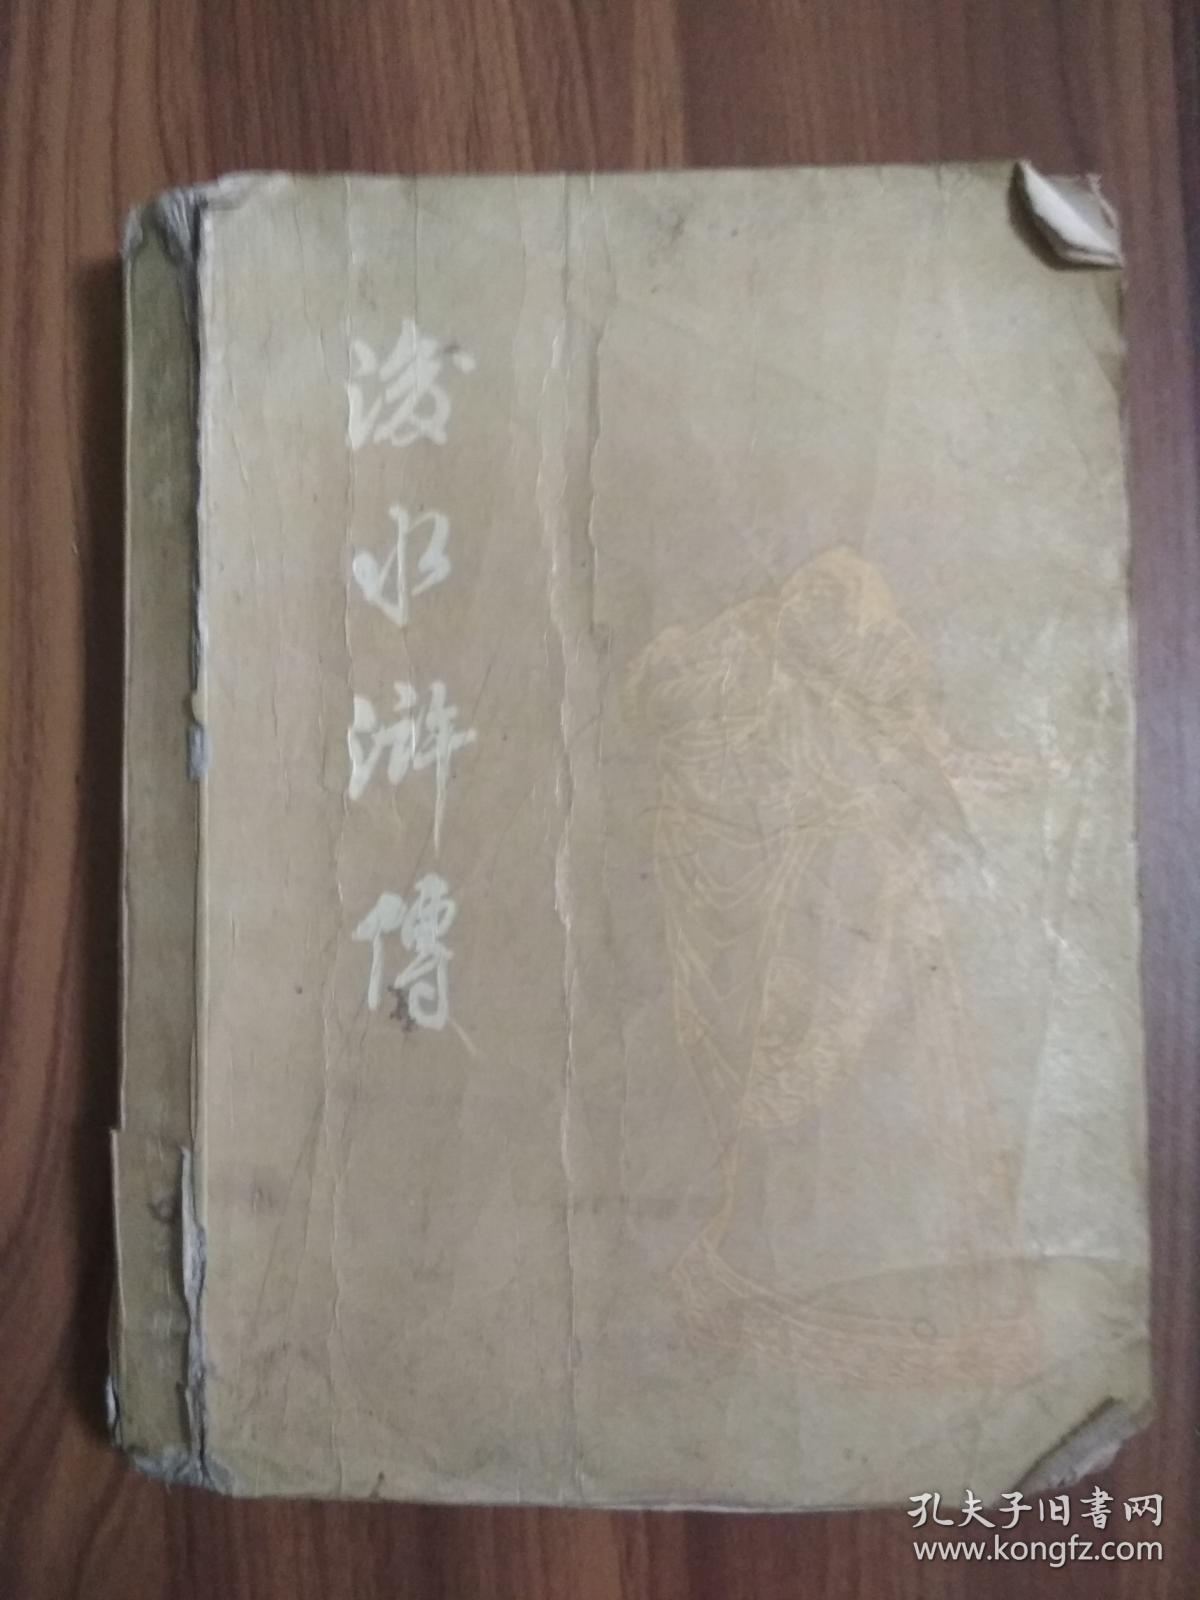 後水滸傳
孔夫子旧書网
www.kongfz.com